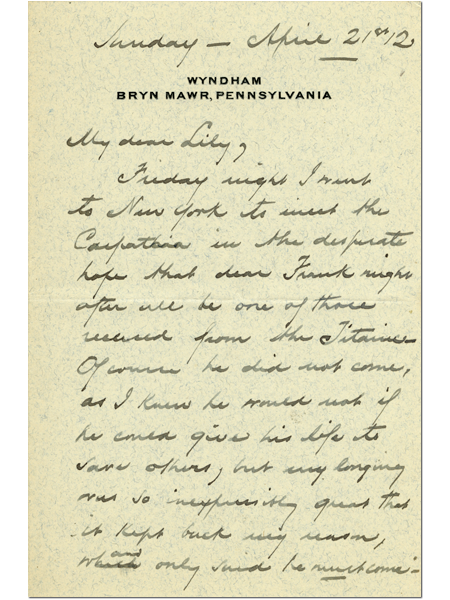 Sunday — April 21st 12
WYNDHAM
BRYN MAWR, PENNSYLVANIA
My dear Lily,
Friday night I went
to New York to meet the
Carpathia in the desperate
hope that dear Frank might
after all be one of those
received from the Titanic –
Of course he did not come,
as I knew he would not if
he could give his life to
save others, but my longing
was so inexpressibly great that
it kept back my reason,
and only said he must come –